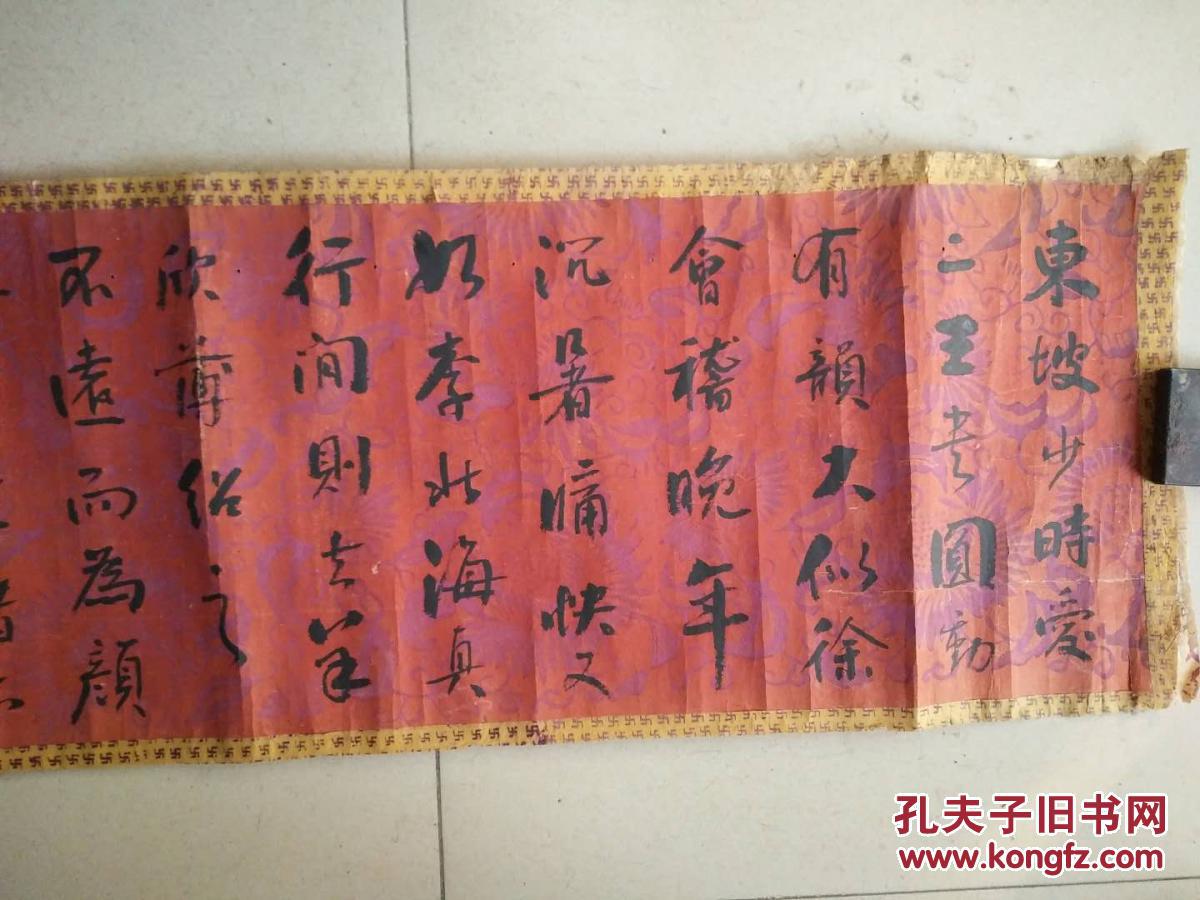 東坡少時愛
二王书圓勁
有韻大似徐
會稽晚年
沉著痛快又
如李北海真
行間則去羊
欣薄紹之
不遠而為顏
孔夫子旧书网
www.kongfz.com